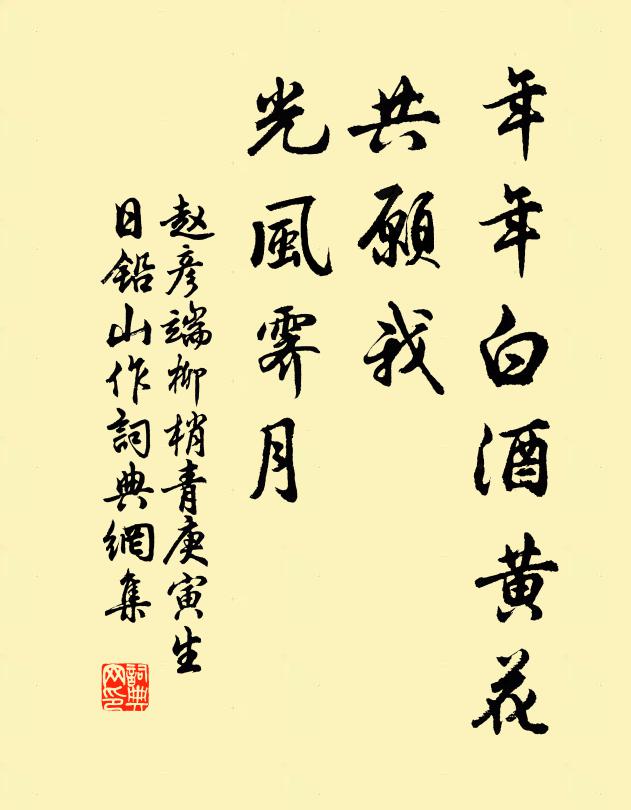 年年白酒黄花
共願我
光風霽月
赵彦端柳梢青庚寅生
日鉛山作詞典網集
詞典网印